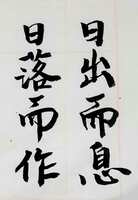 日出而息
日落而作